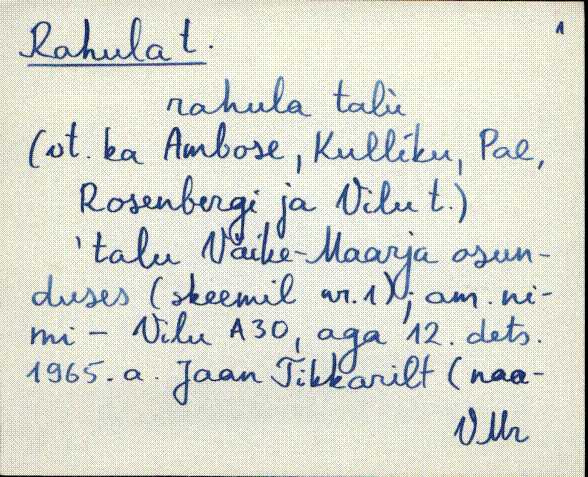 1
Rahula t.
rahula talu
(vt. ka Ambose, Kulliku, Pae,
Rosenbergi ja Vilu t.)
'talu Väike-Maarja asun-
duses (skeemil nr. 1); am. ni-
mi - Vilu A30, aga 12. dets.
1965. a. Jaan Tikkarilt (naa-
VMr